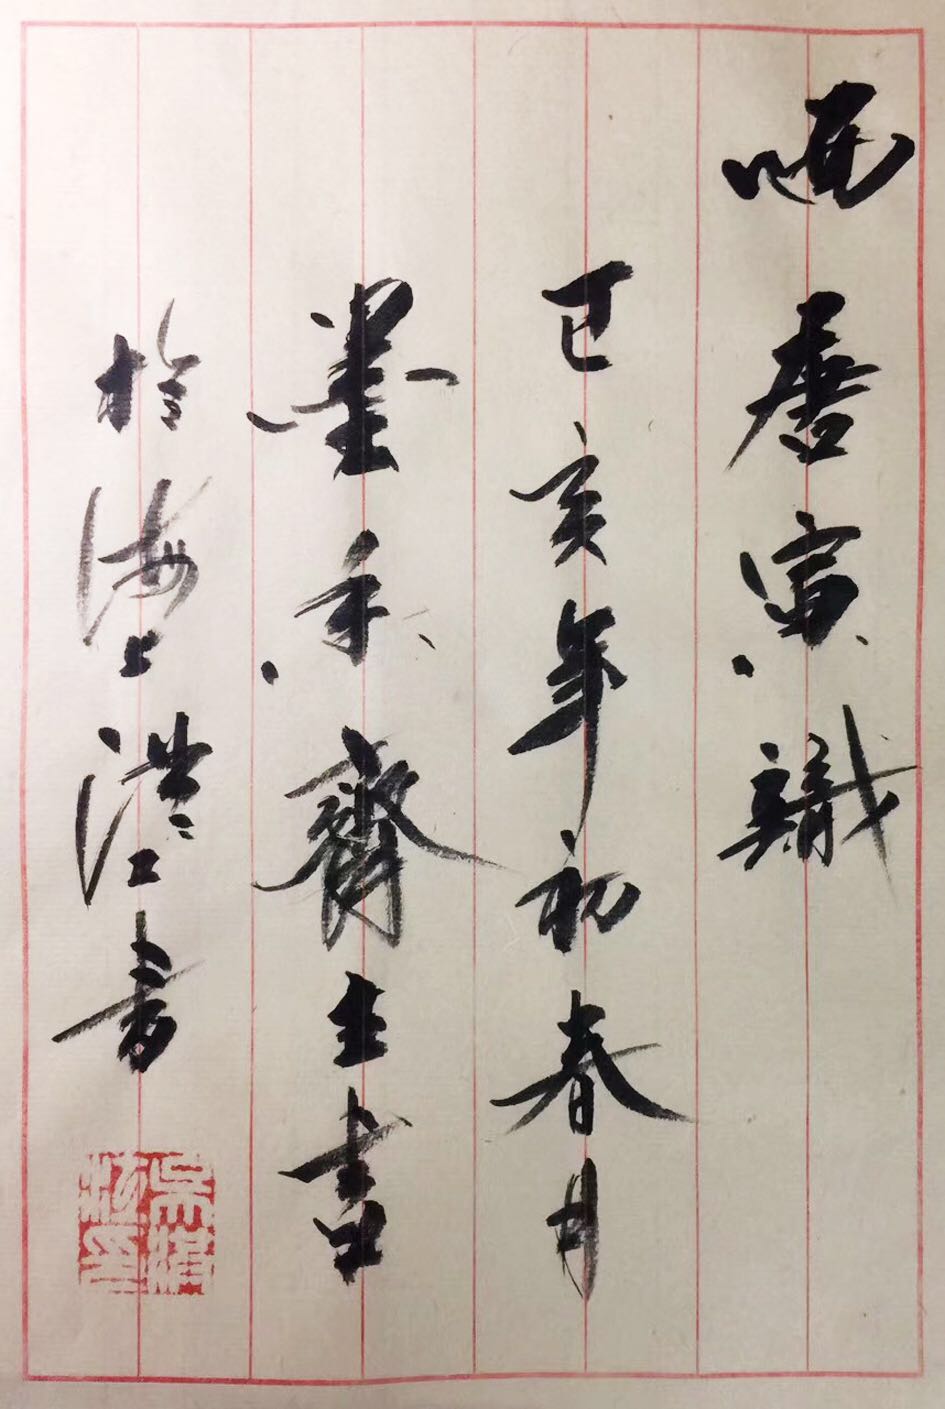 唐寅識
己亥年初春月
墨禾齋主
於海上 書